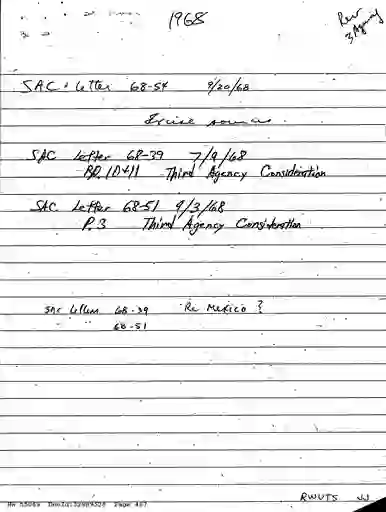 1968
Rev
3 Agency
SAC Letter 68-54 9/20/68
Excise
SAC Letter 68-39 7/9/68
PP. 10+11 Third Agency Consideration
SAC Letter 68-51 9/3/68
P. 3 Third Agency Consideration
SAC Letters 68-39 Re Mexico ?
" " 68-51
RWUTS JJ
Page 467